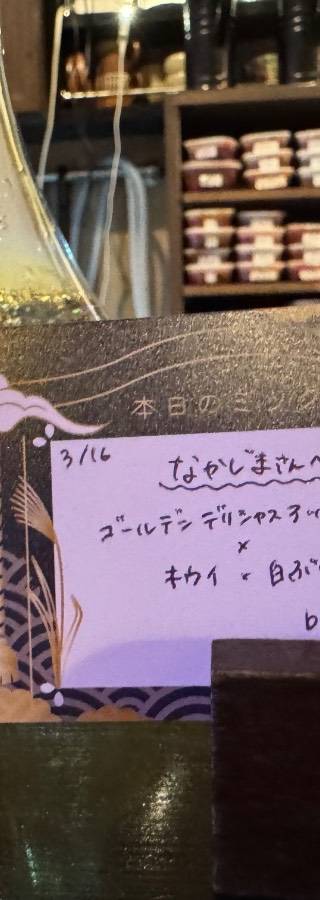 本日のミック
3/16
なかじまさんへ
ゴールデンデリシャス
×
キウイ × 白ぶ
b